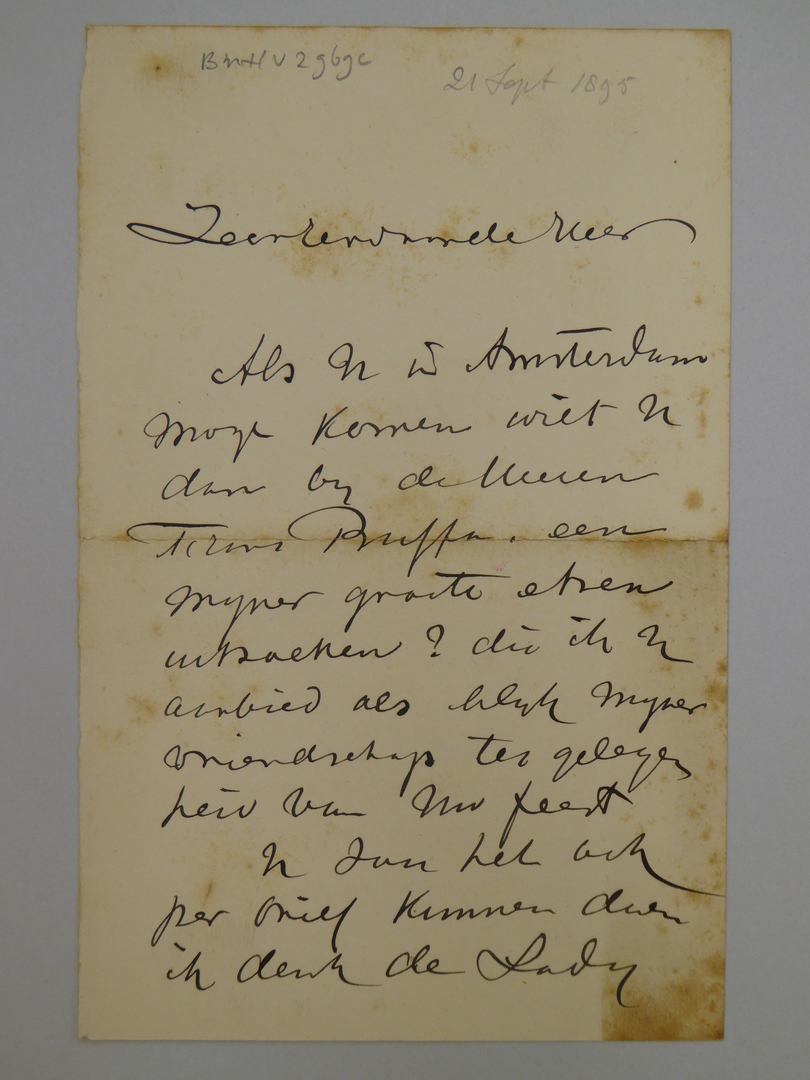 BMH V 2969c
21 Sept 1895
Zeer Eerwaarde Heer
Als U in Amsterdam
moge komen wilt U
dan by de Heeren
Firma Buffa. een
myner groote etsen
uitzoeken? die ik U
aanbied als blyk myner
vriendschap ter gelegen
heid van Uw feest
U zou het ook
per brief kunnen doen
ik denk de Lady